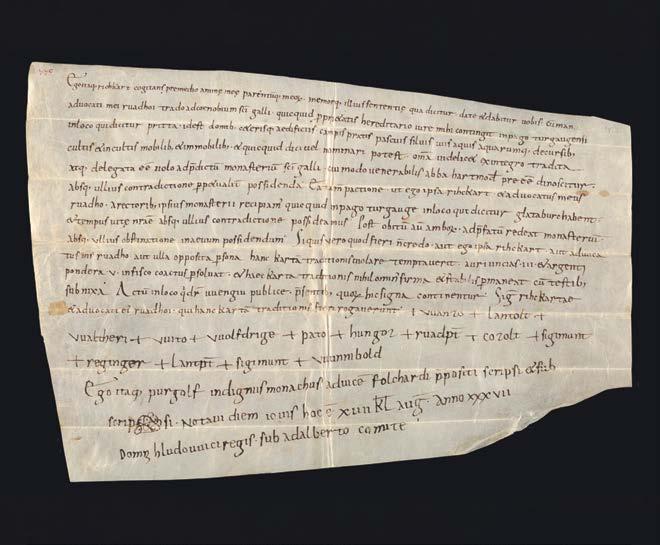 Ego itaq richkart cogitans p remedio animę meę parentūq meoȝ memorq illius sententię qua dicitur date & dabitur vobis Cū man
advocati mei ruadhoi trado ad coenobium sc̄i galli quicquid p̄p̄r&atis hereditario iure mihi contingit in pago turgaugensi
in loco qui dicitur pritta id est domib c&erisq; aedificiis campis pratis pascuis silvis viis aquis aquarumq; decursib;
cultis & incultis mobilib; & inmobilib; & quicquid dici vel nominari potest omīa indelicę & ex integro tradita
atq; delegata eē volo ad p̄dictū monasteriū sc̄i galli cui modo venerabilis abba hartmot p̄eē dinoscitur
absq; ullius contradictione p̄p&ualit possidenda Ea tam pactione ut ego ipsa rihckart & advocatus meus
ruadho a rectorib; ipsius monasterii recipiam quicquid in pago turgauge in loco qui dicitur glataburc habent
& tempus vitę nr̄ae absq; ullius contradictione possideamus Post obitū aū amboȝ ad p̄fatum redeat monasteriū
absq; ullius obstinatione in aevum possidendum Si quis vero quod fieri n̄ credo aut ego ipsa rihckart aut advoca
tus m̄s ruadho aut ulla opposita p̄sona hanc karta traditionis violare temptaverit auri uncias III & argenti
pondera V in fisco coactus p̄solvat & haec karta traditionis nihilomin᷒ firma & stabilis p̄maneat cū testib;
subnixa Actū in loco qui dr̄ wengiu publice p̄sentib; quoȝ hic signa continentur Sig rihckartae
& advocati ei ruadhoi qui hanc kartā traditionis fieri rogaverunt + vuanzo + lantolt +
vualtheri + vuito + vuolfdrige + pato + hungoz + ruadpt̄ + cozolt + sigimunt
+ reginger + lantpt̄ + sigimunt + vuinibold
Ego itaq; purgolf indignus monachus ad vicē folchardi p̄positi scripsi & sub
scripsi Notavi diem iovis hoc ē XIIII kl̄ aug̅ anno XXXVII
Domn̄ hludovvici regis sub adalberto comite